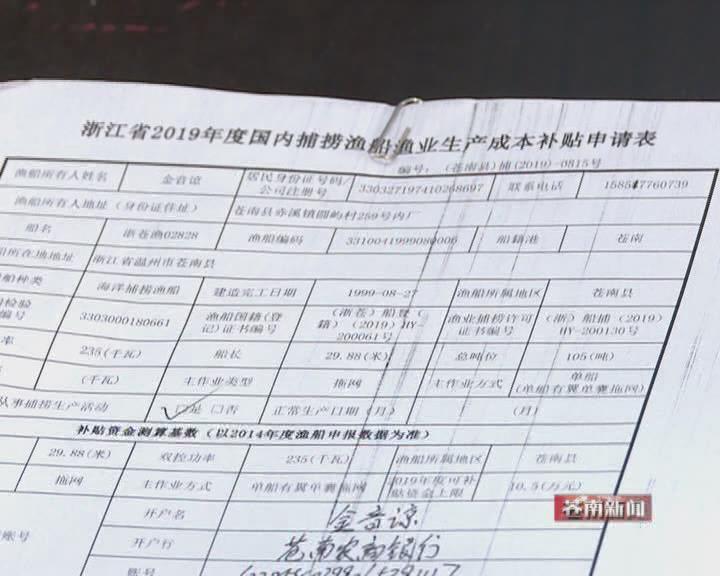 浙江省2019年度国内捕捞渔船渔业生产成本补贴申请表
编号：（苍南县）捕(2019)-0815号
渔船所有人姓名 金音谅 居民身份证号码/公司注册号 330327197410268697 联系电话 15857760739
渔船所有人地址（身份证住址） 苍南县赤溪镇圆屿村259号内厂
船名 浙苍渔02828 渔船编码 3310041999080006 船籍港 苍南
所在地地址 浙江省温州市苍南县
船种类 海洋捕捞渔船 建造完工日期 1999-08-27 渔船所属地区 苍南县
检验编号 3303000180661 渔船国籍(登记)证书编号 (浙苍)船登(籍)(2019)HY-200061号 渔业捕捞许可证书编号 (浙)船捕(2019)HY-200130号
率 235(千瓦) 船长 29.88(米) 总吨位 105(吨)
(千瓦) 主作业类型 拖网 主作业方式 单船(单船有翼单囊拖网)
从事捕捞生产活动 ☑是 □否 正常生产日期(月) (月)
补贴资金测算基数（以2014年度渔船申报数据为准）
29.88(米) 双控功率 235(千瓦) 渔船所属地区 苍南县
拖网 主作业方式 单船有翼单囊拖网 2019年度可补贴资金上限 10.5(万元)
账号 开户名 金音谅
开户行 苍南农商银行
账号
苍南新闻